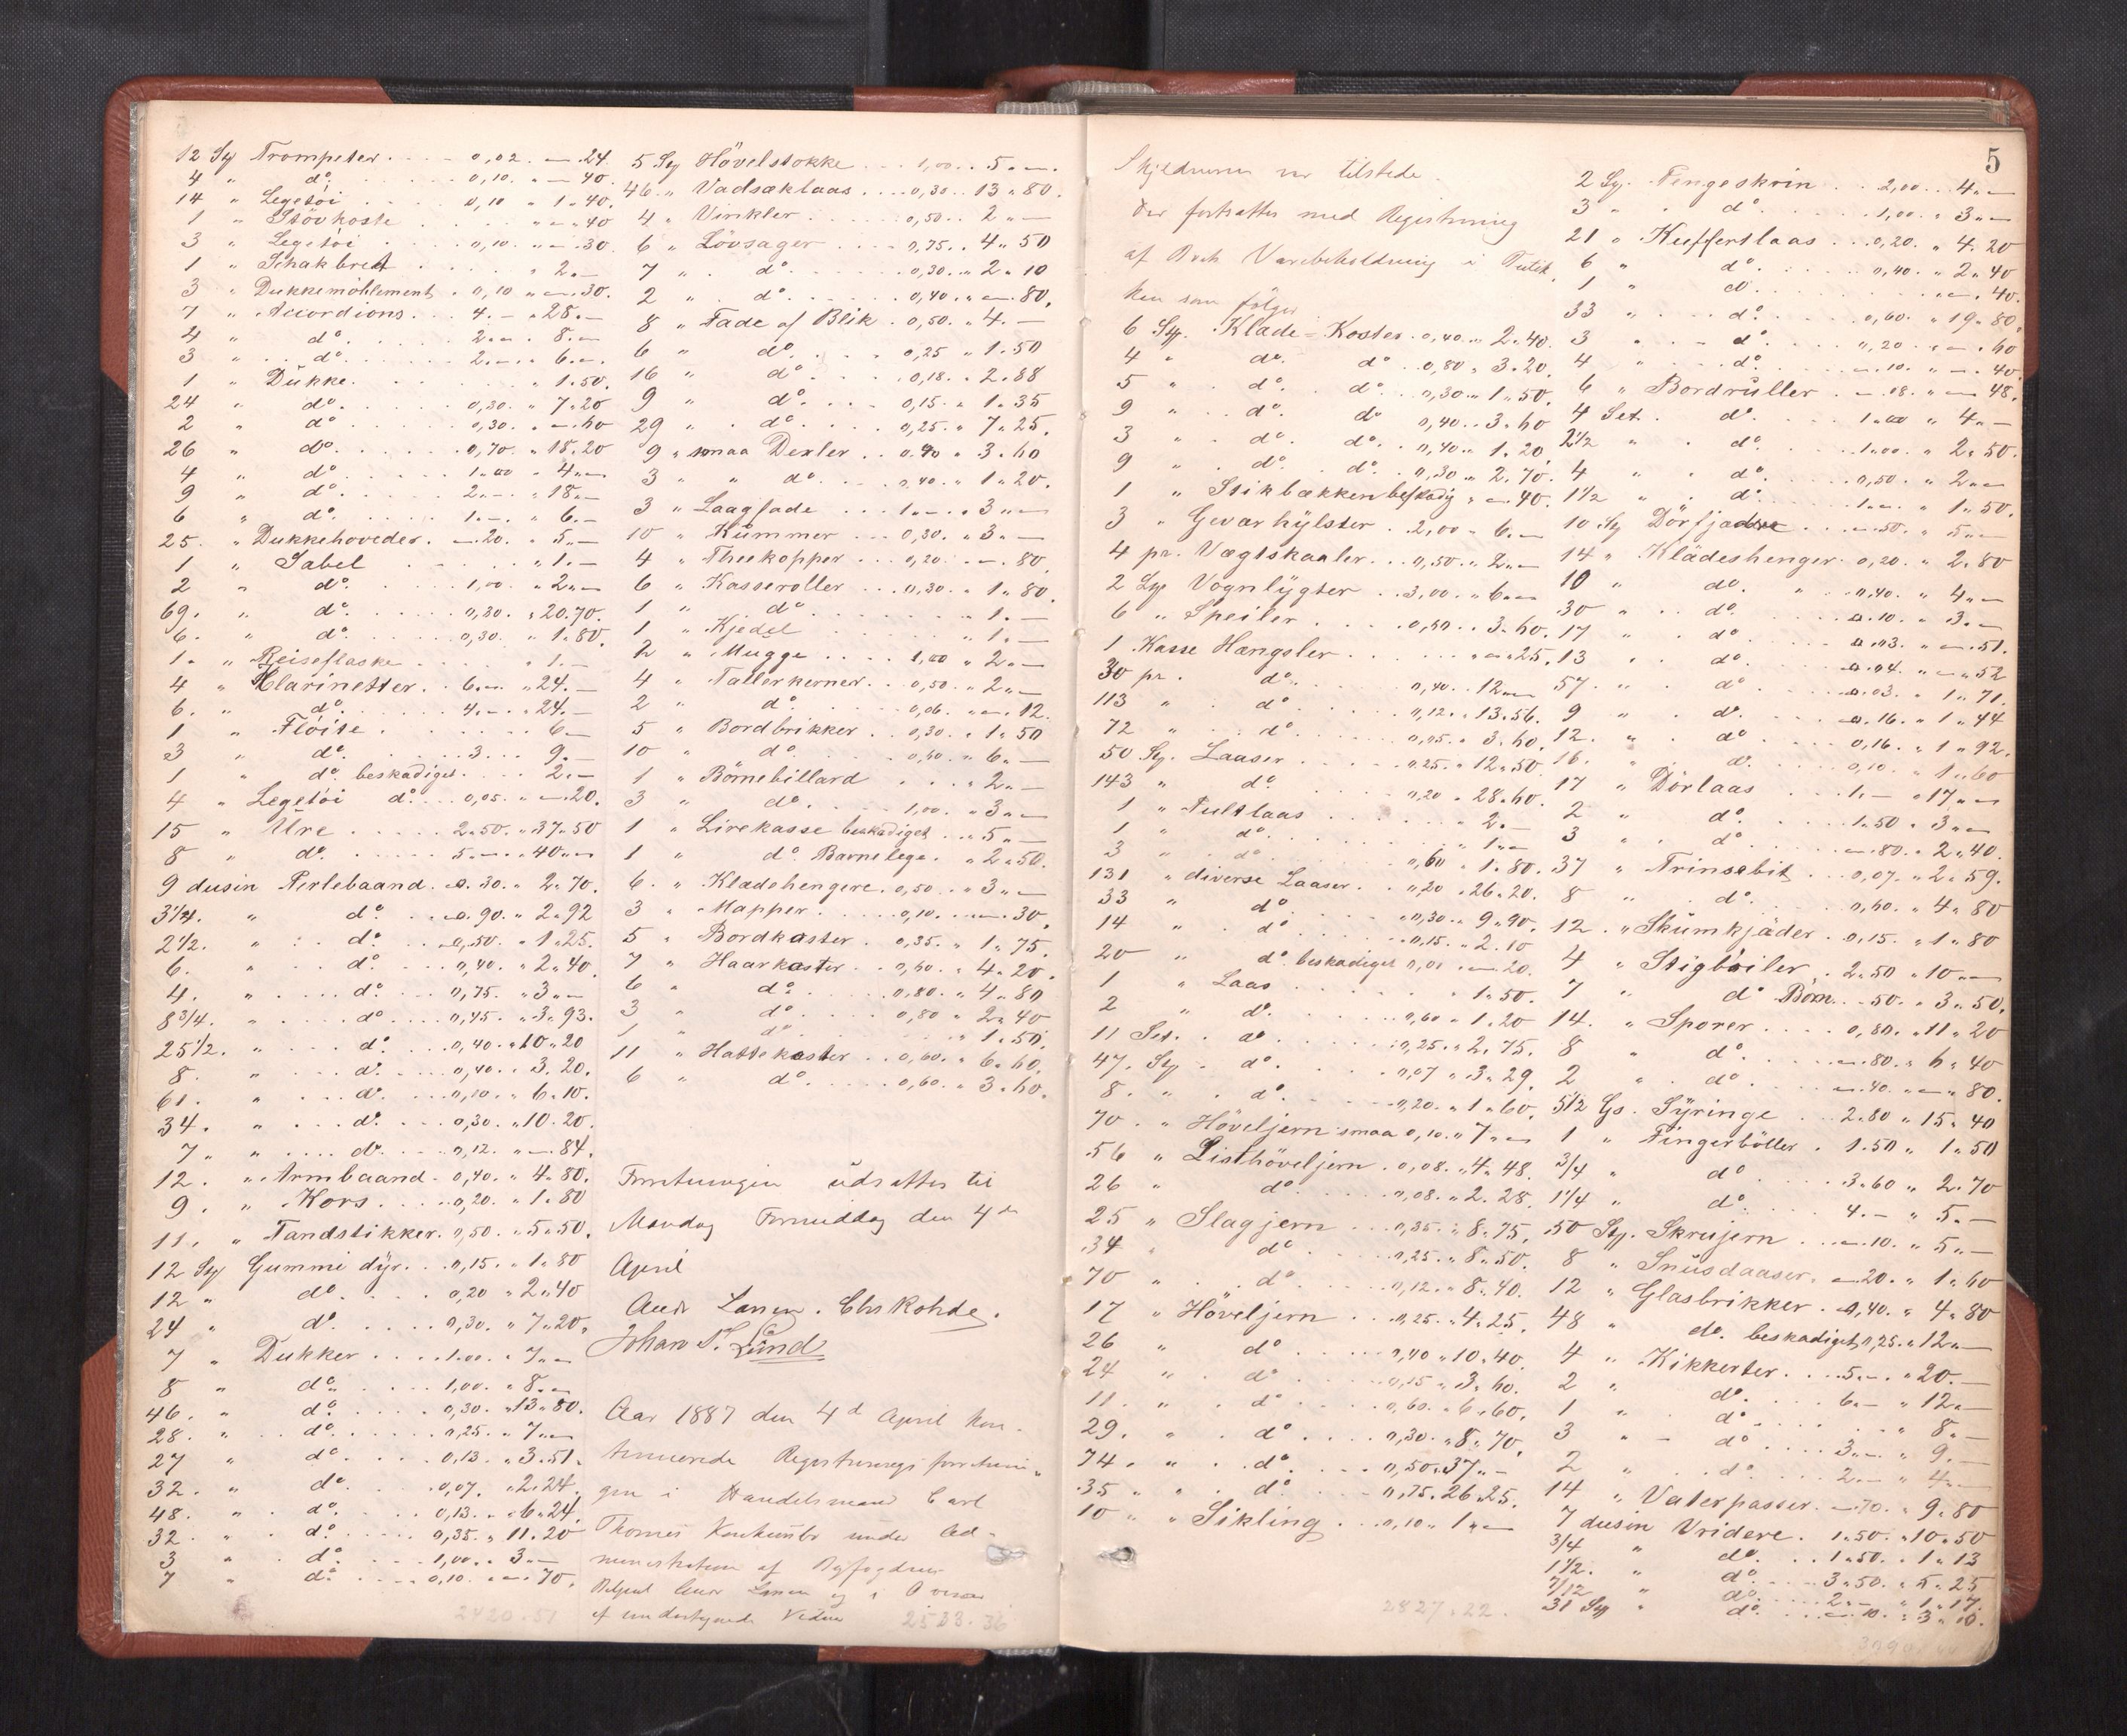 12 Sty Trompeter . . . 0,02 . — 24.
4 " do. . . . 0,10. " — 40.
14 " Legetöi . . . 0,10 " 1 " 40.
1 " Stövkoste . . . " — 40
3 " Legetöi . . . 0,10. " — 30.
1 " Schakbret . . . " 2 " —
3 " Dukkemöblement . 0,10 " — 30.
7 " Accordions . . . 4. — " 28. —
4 " do. . . . 2 " — " 8. —
3 " do. . . . 2. — " 6. —
1 " Dukke. . . . " 1 " 50.
24 " do. . . . 0,30. " 7 " 20
2 " do. . . . 0,30. " — 60
26 " do. . . . 0,70. " 18 " 20
4 " do. . . . 1 " 00 " 4 " —
9 " do. . . . 2. — " 18 " —
6 " do. . . . 1. — " 6. —
25. " Dukkehoveder. — 20. " 5 " —
1 " Sabel . . . " 1. —
2 " do. . . . 1,00 " 2 " —
69. " do. . . . 0,30. " 20.70.
6. " do. . . . 0,30. " 1 " 80.
1. " Reiseflaske . . . " 1. —
4 " Clarinetter . . 6 " — " 24. —
6. " do. . . . 4 " — " 24. —
1 " Flöite . . . 6 —
3 " do. . . . 3 . . 9. —
1 " do. beskadiget . . . 2. —
4 " Legetöi do. . . 0,05. " — 20.
15 " Ure . . . 2 " 50. " 37 " 50
8 " do. . . . 5 " — " 40 " —
9 dusin Perlebaand. 0. 30. " 2 " 70.
3 1/4. " do. . . 0. 90. " 2 " 92
2 1/2. " do. . . 0,50. " 1 " 25.
6. " do. . . 0,40. " 2 " 40.
4. " do. . . 0,75. " 3 " —
8 3/4. " do. . . 0,45. " 3 " 93.
25 1/2. " do. . . 0,40. " 10 " 20
8. " do. . . 0,40. " 3. 20.
61. " do. . . 0,10. " 6 " 10.
34. " do. . . 0,30. " 10. 20.
7. " do. . . 0,12. " — 84.
12. " Armbaand . 0,40. " 4 " 80.
9. " Kors . . . 0,20. " 1 " 80
11. " Tandstikker. 0,50. " 5 " 50.
12 Sty Gummi dyr. . . 0,15. " 1 " 80
12 " do. . . . 0,20 " 2 " 40
24 " do. . . . 0,30. " 7 " 20.
7 " Dukker . . . 1.00. " 7 " —
8 " do. . . . 1,00. " 8 " —
46. " do. . . . 0,30. " 13 " 80.
28. " do. . . . 0,25. " 7 " —
27 " do. . . . 0,13. " 3.51.
32. " do. . . . 0,07. " 2 " 24.
48. " do. . . . 0,13. " 6 " 24.
32. " do. . . . 0,35. " 11. 20
3 " do. . . . 1,00. " 3 " —
7 " do. . . . 0,10. " — 70.
2420.51
5 Sty Hövelstokke . . . 1,00. . 5 " —
46. " Vadsæklaas . . . 0,30. . 13 " 80.
4 " Vinkler . . . 0,50. . 2 " —
6 " Lövsager . . . 0,75. . 4 " 50
7 " do. . . . 0,30. " 2 " 10
2 " do. . . . 0,40. " — 80.
8 " Fade af Blik . 0,50. " 4. —
6 " do. . . . 0,25 " 1 " 50
16 " do. . . . 0,18. " 2 " 88
9 " do. . . . 0,15. " 1 " 35
29 " do. . . . 0,25. " 7 " 25.
9 " smaa Dexler . . 0.40 " 3 " 60
3 " " do. . . . 0,40. " 1 " 20.
3 " Laagfade . . . 1 " — " 3 " —
10 " Kummer . . . 0,30. " 3 " —
4 " Theekopper . . . 0,20. — 80.
6 " Kasseroller . . . 0,30. " 1 " 80.
1 " do. . . . " 1. —
1 " Kjedel . . . " 1. —
2 " Mugge . . . 1,00 " 2 " —
4 " Tallerkerner . . 0,50. " 2 " —
2 " do. . . . 0,06. " — 12.
5 " Bordbrikker . . 0,30. " 1 " 50
10 " do. . . . 0,60. " 6 " —
1 " Börnebillard . . . " 2 " —
3 " do. . . . 1,00. " 3 " —
1 " Lirekasse beskadiget . . " 5 " —
1 " do. Barnelege. . " 2 " 50.
6. " Klædehengere. 0,50. " 3 " —
3 " Mapper . . . 0,10. — 30.
5 " Bordkoster . 0,35. " 1 " 75.
7 " Haarkoster . . 0,60. " 4 " 20.
6 " do. . . . 0,80. " 4 " 80
3 " do. . . . 0,80 " 2 " 40
1 " do. . . . " 1 " 50.
11 " Hattekoster . . 0,60. " 6 " 60.
6 " do. . . . 0,60. " 3 " 60.
Forretningen udsattes til
Mandag Formiddag den 4de
April
Andr Larsen. Chr Rohde.
Johan P. Lund
Aar 1887 den 4d April kon-
tinuerede Registreringsforretnin-
gen i Handelsmand Carl
Thomes Konkursbo under Ad-
ministration af Byfogdens
Betjent Andr Larsen og i Overvær
af undertegnede Vidner
2528.36
5
Skyldneren var tilstede.
Der fortsattes med Registrering
af Boets Varebeholdning i Butik-
ken som følger
6 Sty. Klæde-Koster. 0,40. " 2 " 40.
4 " do. do . 0,80 " 3 " 20.
5 " do. do. 0,30. " 1 " 50.
9 " do. do 0,40. . 3 " 60
3 " do. do. 0,40. " 1 " 20.
9 " do. do. 0,30 " 2 " 70.
1 " Stikbækken beskadig " — 40.
3 " Geværhylster . 2,00 " 6 " —
4 pr. Vægtskaaler . . 0,50 " 2 " —
2 Sty Vognlygter . . 3,00. " 6 " —
6 " Speiler . . . 0,60 . . 3 " 60.
1 Kasse Hængsler . . . " — 25.
30 pr. do. . . . 0,40. . 12 " —
113 " do. . . . 0,12. " 13 " 56.
72 " do. . . . 0,05. " 3 " 60.
50 Sty. Laaser . . . 0,25. " 12 " 50
143 " do. . . . 0,20 " 28 " 60.
1 " Pultlaas . . . " 2. —
1 " do. . . . " 1 " —
3 " do. . . . 0,60 " 1 " 80.
131 " diverse Laaser . . 0,20 " 26 " 20.
33 " do. . . . 0,30. " 9 " 90.
14 " do. . . . 0,15. " 2. 10
20 " do. beskadiget 0,01 " — 20.
1 " Laas . . . " 1 " 50.
2 " do. . . . 0,60 " 1 " 20
11 Set. . do. . . . 0,25. " 2 " 75.
47. Sty . do. . . . 0,07 " 3 " 29.
8. " do. . . . 0,20. " 1 " 60.
70. " Höveljern smaa 0,10. " 7 " —
56 " Listhöveljern . 0,08. " 4 " 48.
26 " do. . . . 0,08. " 2. 28.
25 " Slagjern . . . 0,35. " 8 " 75.
34 " do. . . . 0,25. " 8 " 50.
70 " do. . . . 0,12. " 8. 40.
17 " Höveljern . . . 0,25. " 4 " 25.
26 " do. . . . 0,40 " 10 " 40.
24 " do. . . . 0,15 " 3 " 60.
11. " do. . . . 0,60. " 6 " 60.
29. " do. . . . 0,30. " 8 " 70.
74. " do. . . . 0,50. " 37 " —
35 " do. . . . 0,75. 26 " 25.
10 " " Sikling . . . 0,10. " 1 " —
2827.22.
2 Sty. Pengeskrin . . 2,00. . 4 " —
3 " do. . . . 1,00. " 3 " —
21 " Kuffertlaas . . . 0,20. " 4. 20
6 " do. . . . 0,40. " 2 " 40
1 " do. . . . " — 40.
33 " do. . . . 0,60. " 19 " 80.
3 " do. . . . 0,20. " — 60
4 " do. . . . — 10. " — 40.
6 " Bordruller . . — 08. " — 48.
4 Set. . do. . . . 1 " 00 " 4 " —
2 1/2 " do. . . . 1 " 00. " 2 " 50.
4 " do. . . . 0,50. " 2 " —
1 1/2 " do. . . . 1 " — " 1 " 50.
10 Sty Dörfjædre . . . — 50. " 5 " —
14 " Klädeshenger. 0,20. " 2. 80
10 " do. . . . 0,40. " 4 " —
30 " do. . . . 0. 10. " 3 " —
17 " do. . . . 0. 03. " — 51.
13 " do. . . . 0. 04. " — 52
57. " do. . . . 0. 03. " 1 " 71.
9 " do. . . . 0. 16. " 1 " 44
12. " do. . . . 0,16. " 1 " 92.
16. " do. . . . 0,10. " 1 " 60
17 " Dörlaas . . . 1. — " 17 " —
2 " do. . . . 1 " 50 " 3 " —
3 " do. . . . — 80. " 2 " 40.
37 " Trinsebit . . . 0,07. " 2 " 59.
8 " do. . . . 0,60. " 4 " 80
12. " Skumkjäder . 0,15. " 1 " 80
4 " Stigböiler . . 2 " 50 " 10 " —
7 " do. Börn. — 50. " 3 " 50.
14. " Sporer . . . 0,80. " 11 " 20
8 " do. . . . — 80. " 6 " 40
2 " do. . . . — 40. " — 80.
5 1/2 Gs. Syringe . . . 2 " 80 " 15 " 40
1 " Fingerböller . 1.50 " 1 " 50
3/4 " do. . . . 3 " 60 " 2. 70
1 1/4 " do. . . . 4. — " 5. —
50 Sty. Skrujern . . . — 10. " 5 " —
8 " Snusdaaser . — 20. " 1 " 60
12 " Glasbrikker . 0,40. " 4 " 80
48 " do. beskadiget 0,25. " 12 " —
4 " Kikkerter . . . 5 " — " 20. —
2 " do. . . . 6 " — " 12 " —
1 " do. . . . " 8. —
3 " do. . . . 3 " — " 9. —
2 " do. . . . 2 " — " 4 " —
14 " Vaterpasser. — 70. " 9 " 80
7 dusin Vridere . 1 " 50. " 10 " 50
3/4 " do. . . 1 " 50. " 1 " 13
1 1/2. " do. . . 3 " 50. " 5 " 25
7/12 " do. . . 2 " — " 1 " 17.
31 Sty " do. . . — 10. " 3 " 10.